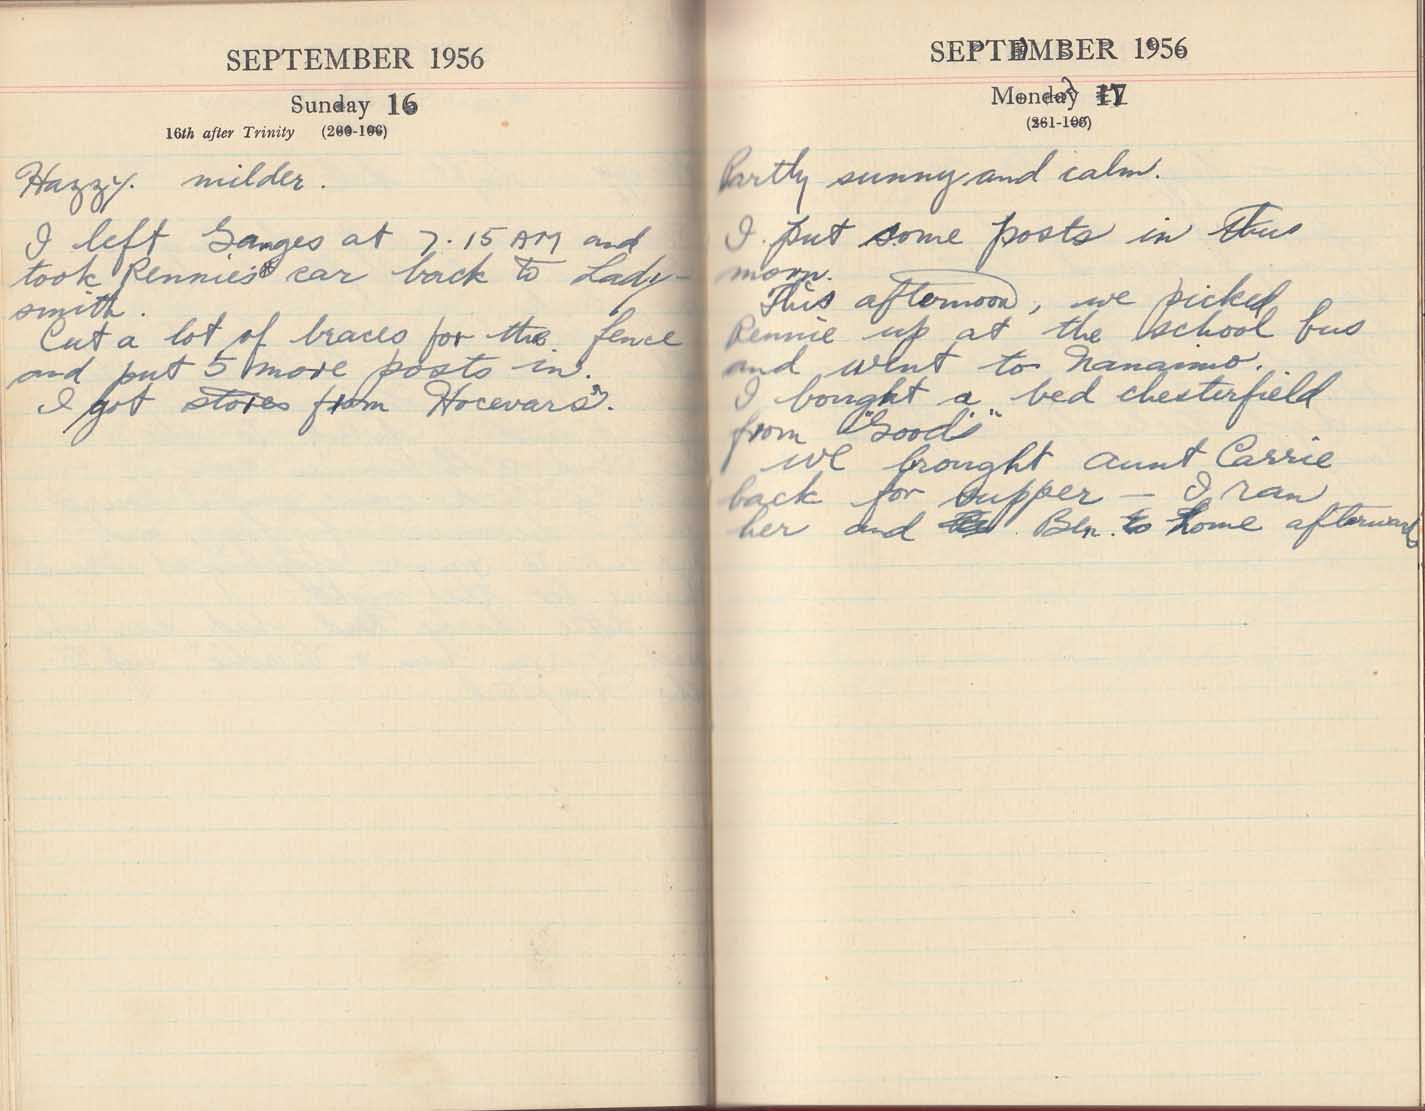 SEPTEMBER 1956
Sunday 16
16th after Trinity (260-106)
Hazzy. milder.
I left Ganges at 7.15 AM and
took Rennie's car back to Lady-
smith.
Cut a lot of braces for the fence
and put 5 more posts in.
I got stores from Hocevars.
SEPTEMBER 1956
Monday 17
(261-105)
Partly sunny and calm.
I put some posts in this
morn.
This afternoon, we picked
Rennie up at the school bus
and went to Nanaimo.
I bought a bed chesterfield
from "Good's"
we brought aunt Carrie
back for supper — I ran
her and Ben. to home afterward